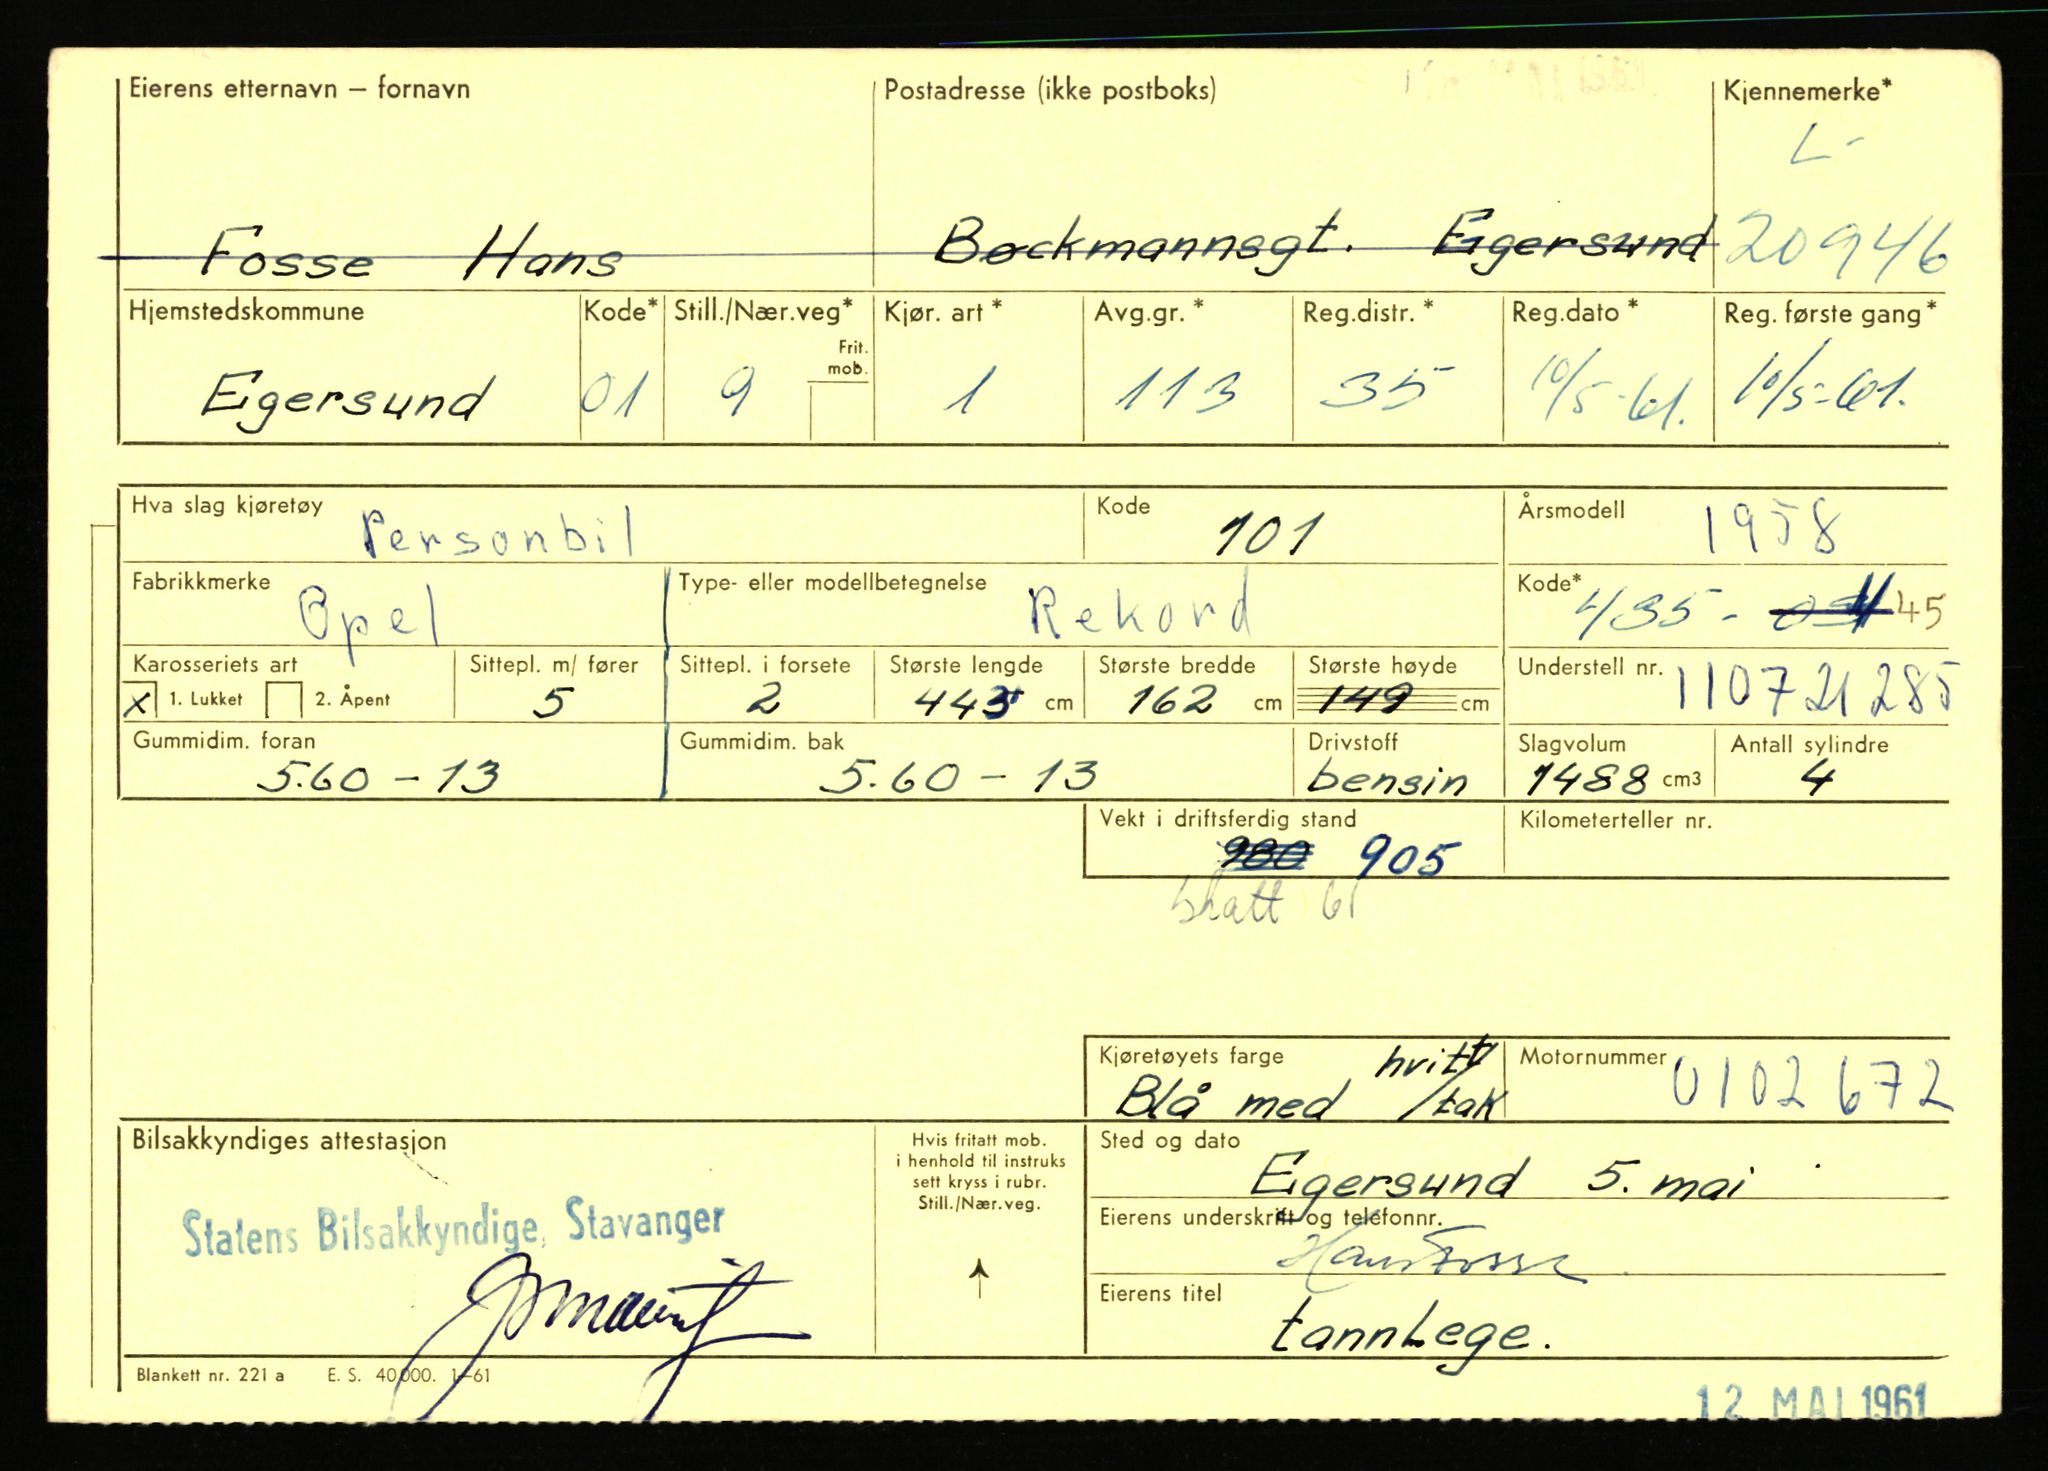 Eierens etternavn – fornavn Postadresse (ikke postboks) Kjennemerke*
L-
Fosse Hans Bøckmannsgt. Egersund 20946
Hjemstedskommune Kode* Still./Nær.veg* Kjør. art * Avg.gr. * Reg.distr. * Reg.dato * Reg. første gang *
Frit. mob.
Egersund 01 9 1 113 35 10/5-61. 10/5-61.
Hva slag kjøretøy Personbil Kode 101 Årsmodell 1958
Fabrikkmerke Opel Type- eller modellbetegnelse Rekord Kode* 435- 45
Karosseriets art Sittepl. m/ fører Sittepl. i forsete Største lengde Største bredde Største høyde Understell nr. 110721285
x 1. Lukket 2. Åpent 5 2 443 cm 162 cm 149 cm
Gummidim. foran Gummidim. bak Drivstoff Slagvolum Antall sylindre
5.60 – 13 5.60 – 13 bensin 1488 cm3 4
Vekt i driftsferdig stand Kilometerteller nr.
900 905
skatt 61
Kjøretøyets farge hvitt Motornummer 0102672
Blå med /tak
Bilsakkyndiges attestasjon Hvis fritatt mob. i henhold til instruks sett kryss i rubr. Still./Nær.veg. Sted og dato
Egersund 5. mai
Statens Bilsakkyndige, Stavanger Eierens underskrift og telefonnr.
Hans Fosse
Eierens titel
tannlege.
Blankett nr. 221 a E. S. 40 000. 1–61
12 MAI 1961